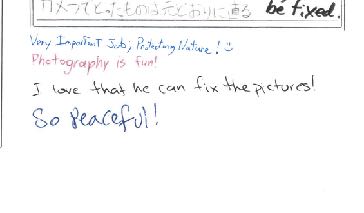 カメラでとったものは元どおりに直る be fixed.
Very Important Job; Protecting Nature! :)
Photography is fun!
I love that he can fix the pictures!
So Peaceful!